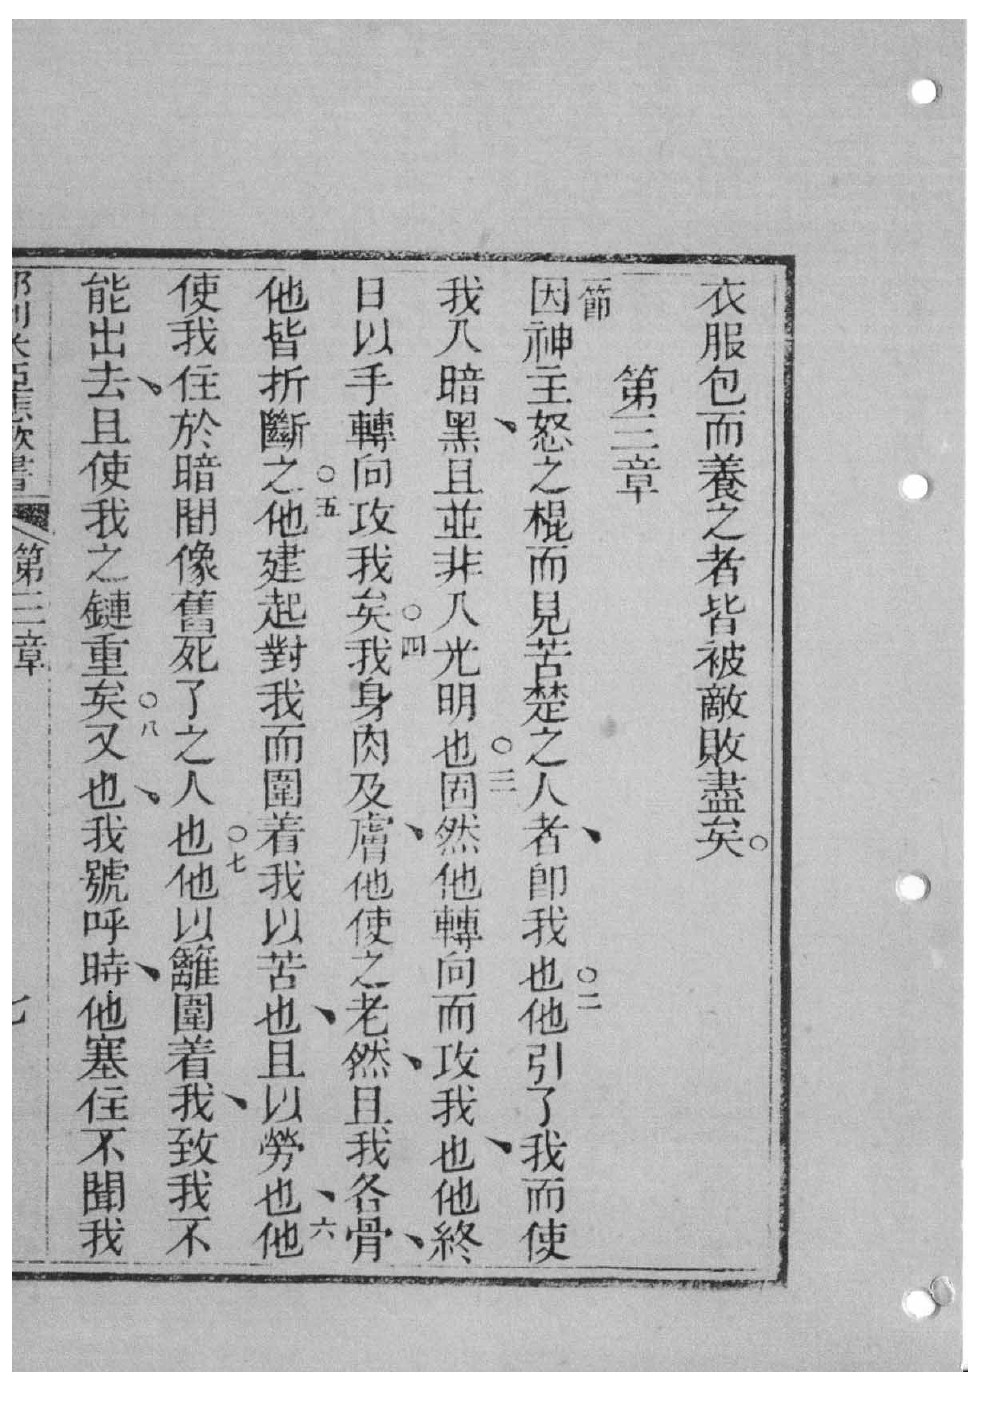 衣服包而養之者皆被敵敗盡矣○
第三章
一節因神主怒之棍而見苦楚之人、者卽我也○二他引了我而使
我入暗黑、且並非入光明也○三固然他轉向而攻我也、他終
日以手轉向攻我矣○四我身肉及膚、他使之老然、且我各骨、
他皆折斷之○五他建起對我而圍着我以苦也、且以勞也、六他
使我住於暗間像舊死了之人也○七他以籬圍着我、致我不
能出去、且使我之鏈重矣○八又也、我號呼時、他塞住不聞我
耶利米亞悲歎書 第三章 七